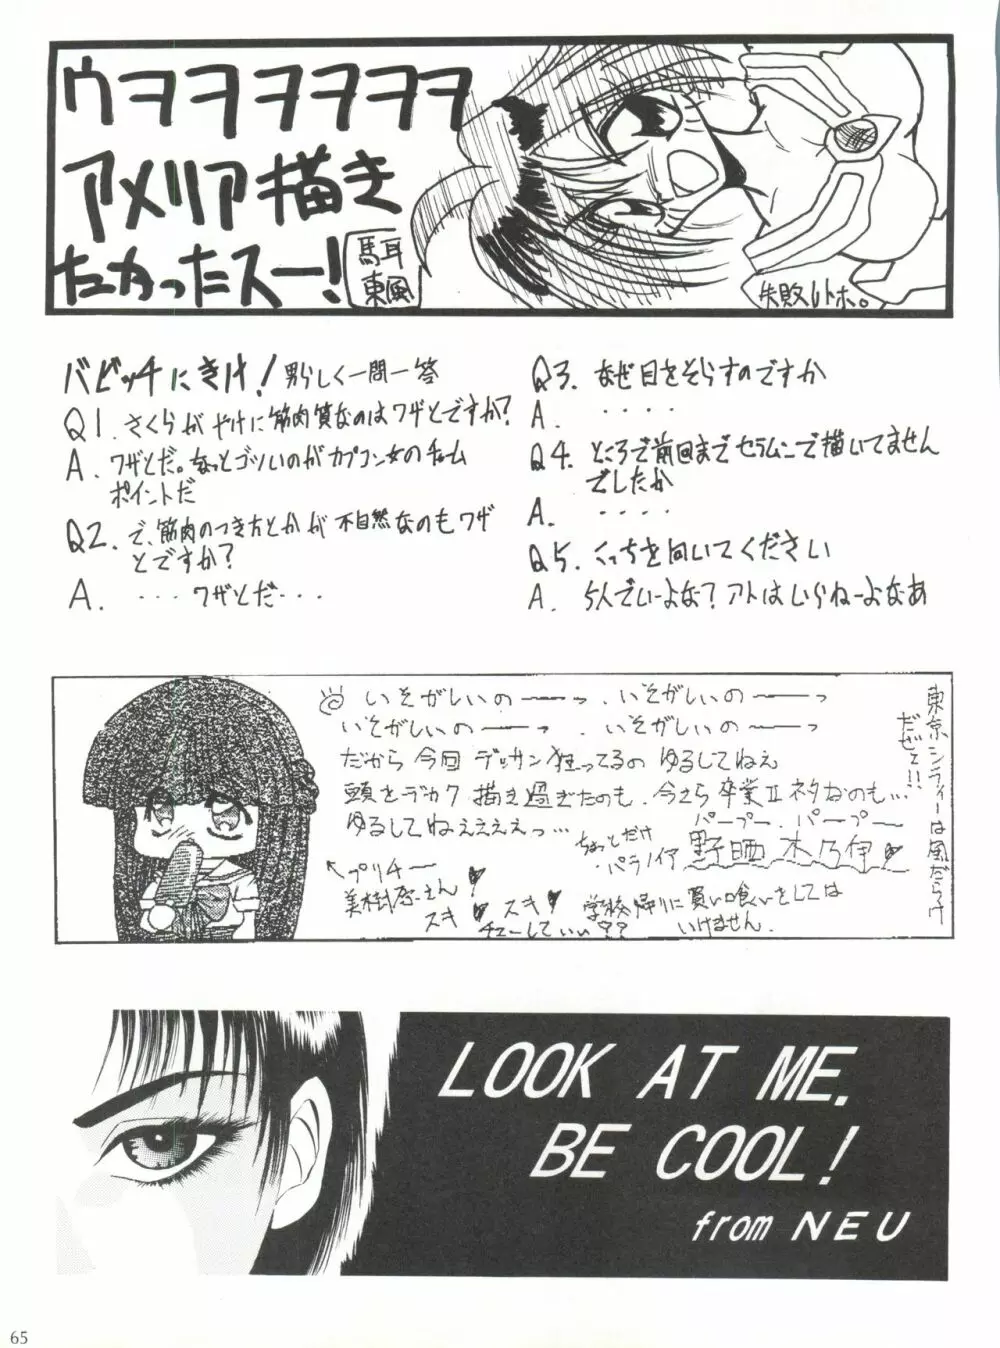 ウヲヲヲヲヲヲ
アメリア描き
たかったスー!
馬耳
東風
失敗しトホ。
バビッチにきけ! 男らしく一問一答
Q1. さくらがやけに筋肉質なのはワザとですか?
A. ワザとだ。もっとゴツいのがカプコン女のチャーム
ポイントだ
Q2. で、筋肉のつき方とかが不自然なのもワザ
とですか?
A. ・・・ワザとだ・・・
Q3. なぜ目をそらすのですか
A. ・・・・
Q4. ところで前回までセラムンで描いてません
でしたか
A. ・・・・
Q5. こっちを向いてください
A. 5人でいーよな?アトはいらねーよなあ
いそがしいの――っ. いそがしいの――っ
いそがしいの――っ. いそがしいの――っ
だから今回デッサン狂ってるのゆるしてねえ
頭をデカク描き過ぎたのも、今さら卒業Ⅱネタなのも…
ゆるしてねえええっ… パープー、パープー
ちょっとだけ
パラノイア 野晒 木乃伊♥
←プリチー
美樹原さん!
スキ♥ スキ♥
チューしていい??
学校帰りに買い喰いをしては
いけません.
東京シティーは風だらけ
だぜと!!
LOOK AT ME.
BE COOL!
from NEU
65